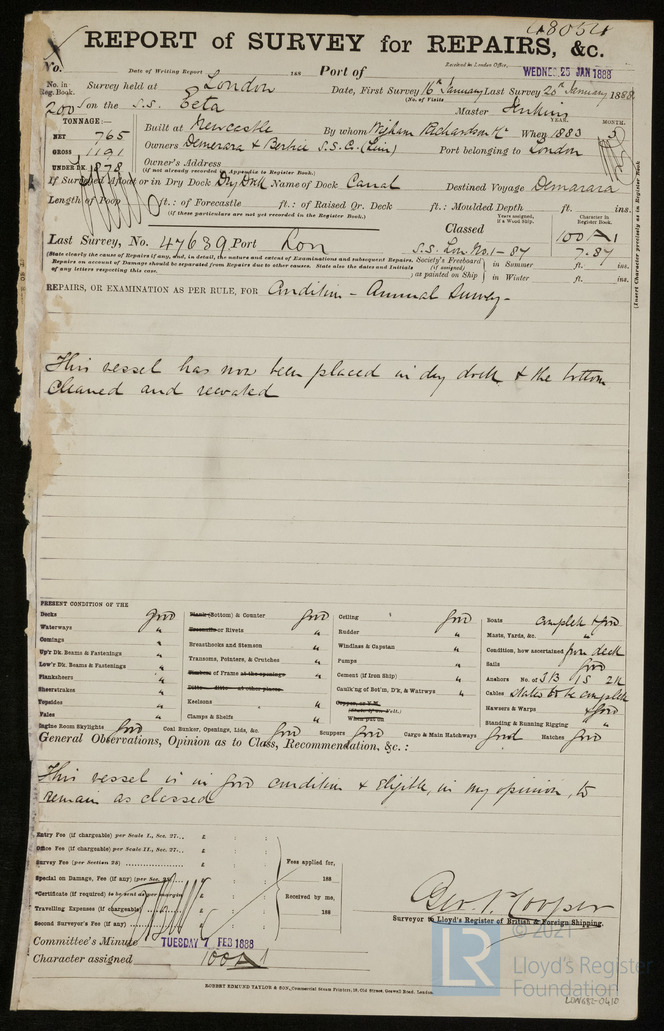 48054
REPORT of SURVEY for REPAIRS, &c.
No. Date of Writing Report 188 Port of Received at London Office, WEDNES. 25 JAN 1888
No. in Reg. Book. Survey held at London Date, First Survey 16th January Last Survey 20th January 1888
(No. of Visits
200 on the S.S. Eeta Master Jenkins
TONNAGE:— YEAR. MONTH.
NET 765 Built at Newcastle By whom Wigham Richardson & Co When 1883 3
GROSS 1191 Owners Demerara & Berbice S.S. Co (Lim) Port belonging to London
UNDER DK. 878 Owner's Address
(if not already recorded in Appendix to Register Book.)
If Surveyed Afloat or in Dry Dock Dry Dock Name of Dock Canal Destined Voyage Demarara
Length of Poop ft.: of Forecastle ft.: of Raised Qr. Deck ft.: Moulded Depth ft. ins.
(if these particulars are not yet recorded in the Register Book.)
Years assigned, if a Wood Ship. Character in Register Book.
Classed 100 A 1
Last Survey, No. 47689 Port Lon S.S. Lon No. 1 - 87 7.87
(State clearly the cause of Repairs if any, and, in detail, the nature and extent of Examinations and subsequent Repairs. Repairs on account of Damage should be separated from Repairs due to other causes. State also the dates and Initials of any letters respecting this case.
Society's Freeboard (if assigned) as painted on Ship in Summer ft. ins.
in Winter ft. ins.
(Insert Character precisely as in Register Book
REPAIRS, OR EXAMINATION AS PER RULE, FOR Condition - Annual Survey -
This vessel has now been placed in dry dock & the bottom
cleaned and recoated
PRESENT CONDITION OF THE
Decks good
Waterways "
Comings "
Up'r Dk. Beams & Fastenings "
Low'r Dk. Beams & Fastenings "
Planksheers "
Sheerstrakes "
Topsides "
Wales "
Engine Room Skylights good
Plank (Bottom) & Counter good
Treenails or Rivets "
Breasthooks and Stemson "
Transoms, Pointers, & Crutches "
Timbers of Frame at the openings "
Ditto ditto at other places.
Keelsons "
Clamps & Shelfs "
Coal Bunker, Openings, Lids, &c. good
Ceiling good
Rudder "
Windlass & Capstan "
Pumps "
Cement (if Iron Ship) "
Caulk'ng of Bot'm, D'k, & Watrwys "
Copper, or Y.M.
When put on
Scuppers good Cargo & Main Hatchways good Hatches good
Boats complete & good
Masts, Yards, &c. "
Condition, how ascertained from deck
Sails good
Anchors No. of 3 B 1 S 2 K
Cables stated to be complete
Hawsers & Warps & good
Standing & Running Rigging "
General Observations, Opinion as to Class, Recommendation, &c.:
This vessel is in good condition & eligible, in my opinion, to
remain as classed
Entry Fee (if chargeable) per Scale I., Sec. 27... £ : :
Office Fee (if chargeable) per Scale II., Sec. 27... £ : :
Survey Fee (per Section 28) £ : : Fees applied for,
Special on Damage, Fee (if any) (per Sec. 28) £ : : 188
*Certificate (if required) to be sent as per margin £ : : Received by me,
Travelling Expenses (if chargeable) £ : : 188
Second Surveyor's Fee (if any) £ : :
Geo. P. Cooper
Surveyor to Lloyd's Register of British & Foreign Shipping.
Committee's Minute TUESDAY 7 FEB 1888
Character assigned 100 A 1
ROBERT EDMUND TAYLOR & SON, Commercial Steam Printers, 19, Old Street, Goswell Road, London.
© 2021
LR
Lloyd's Register
Foundation
LON682-0410